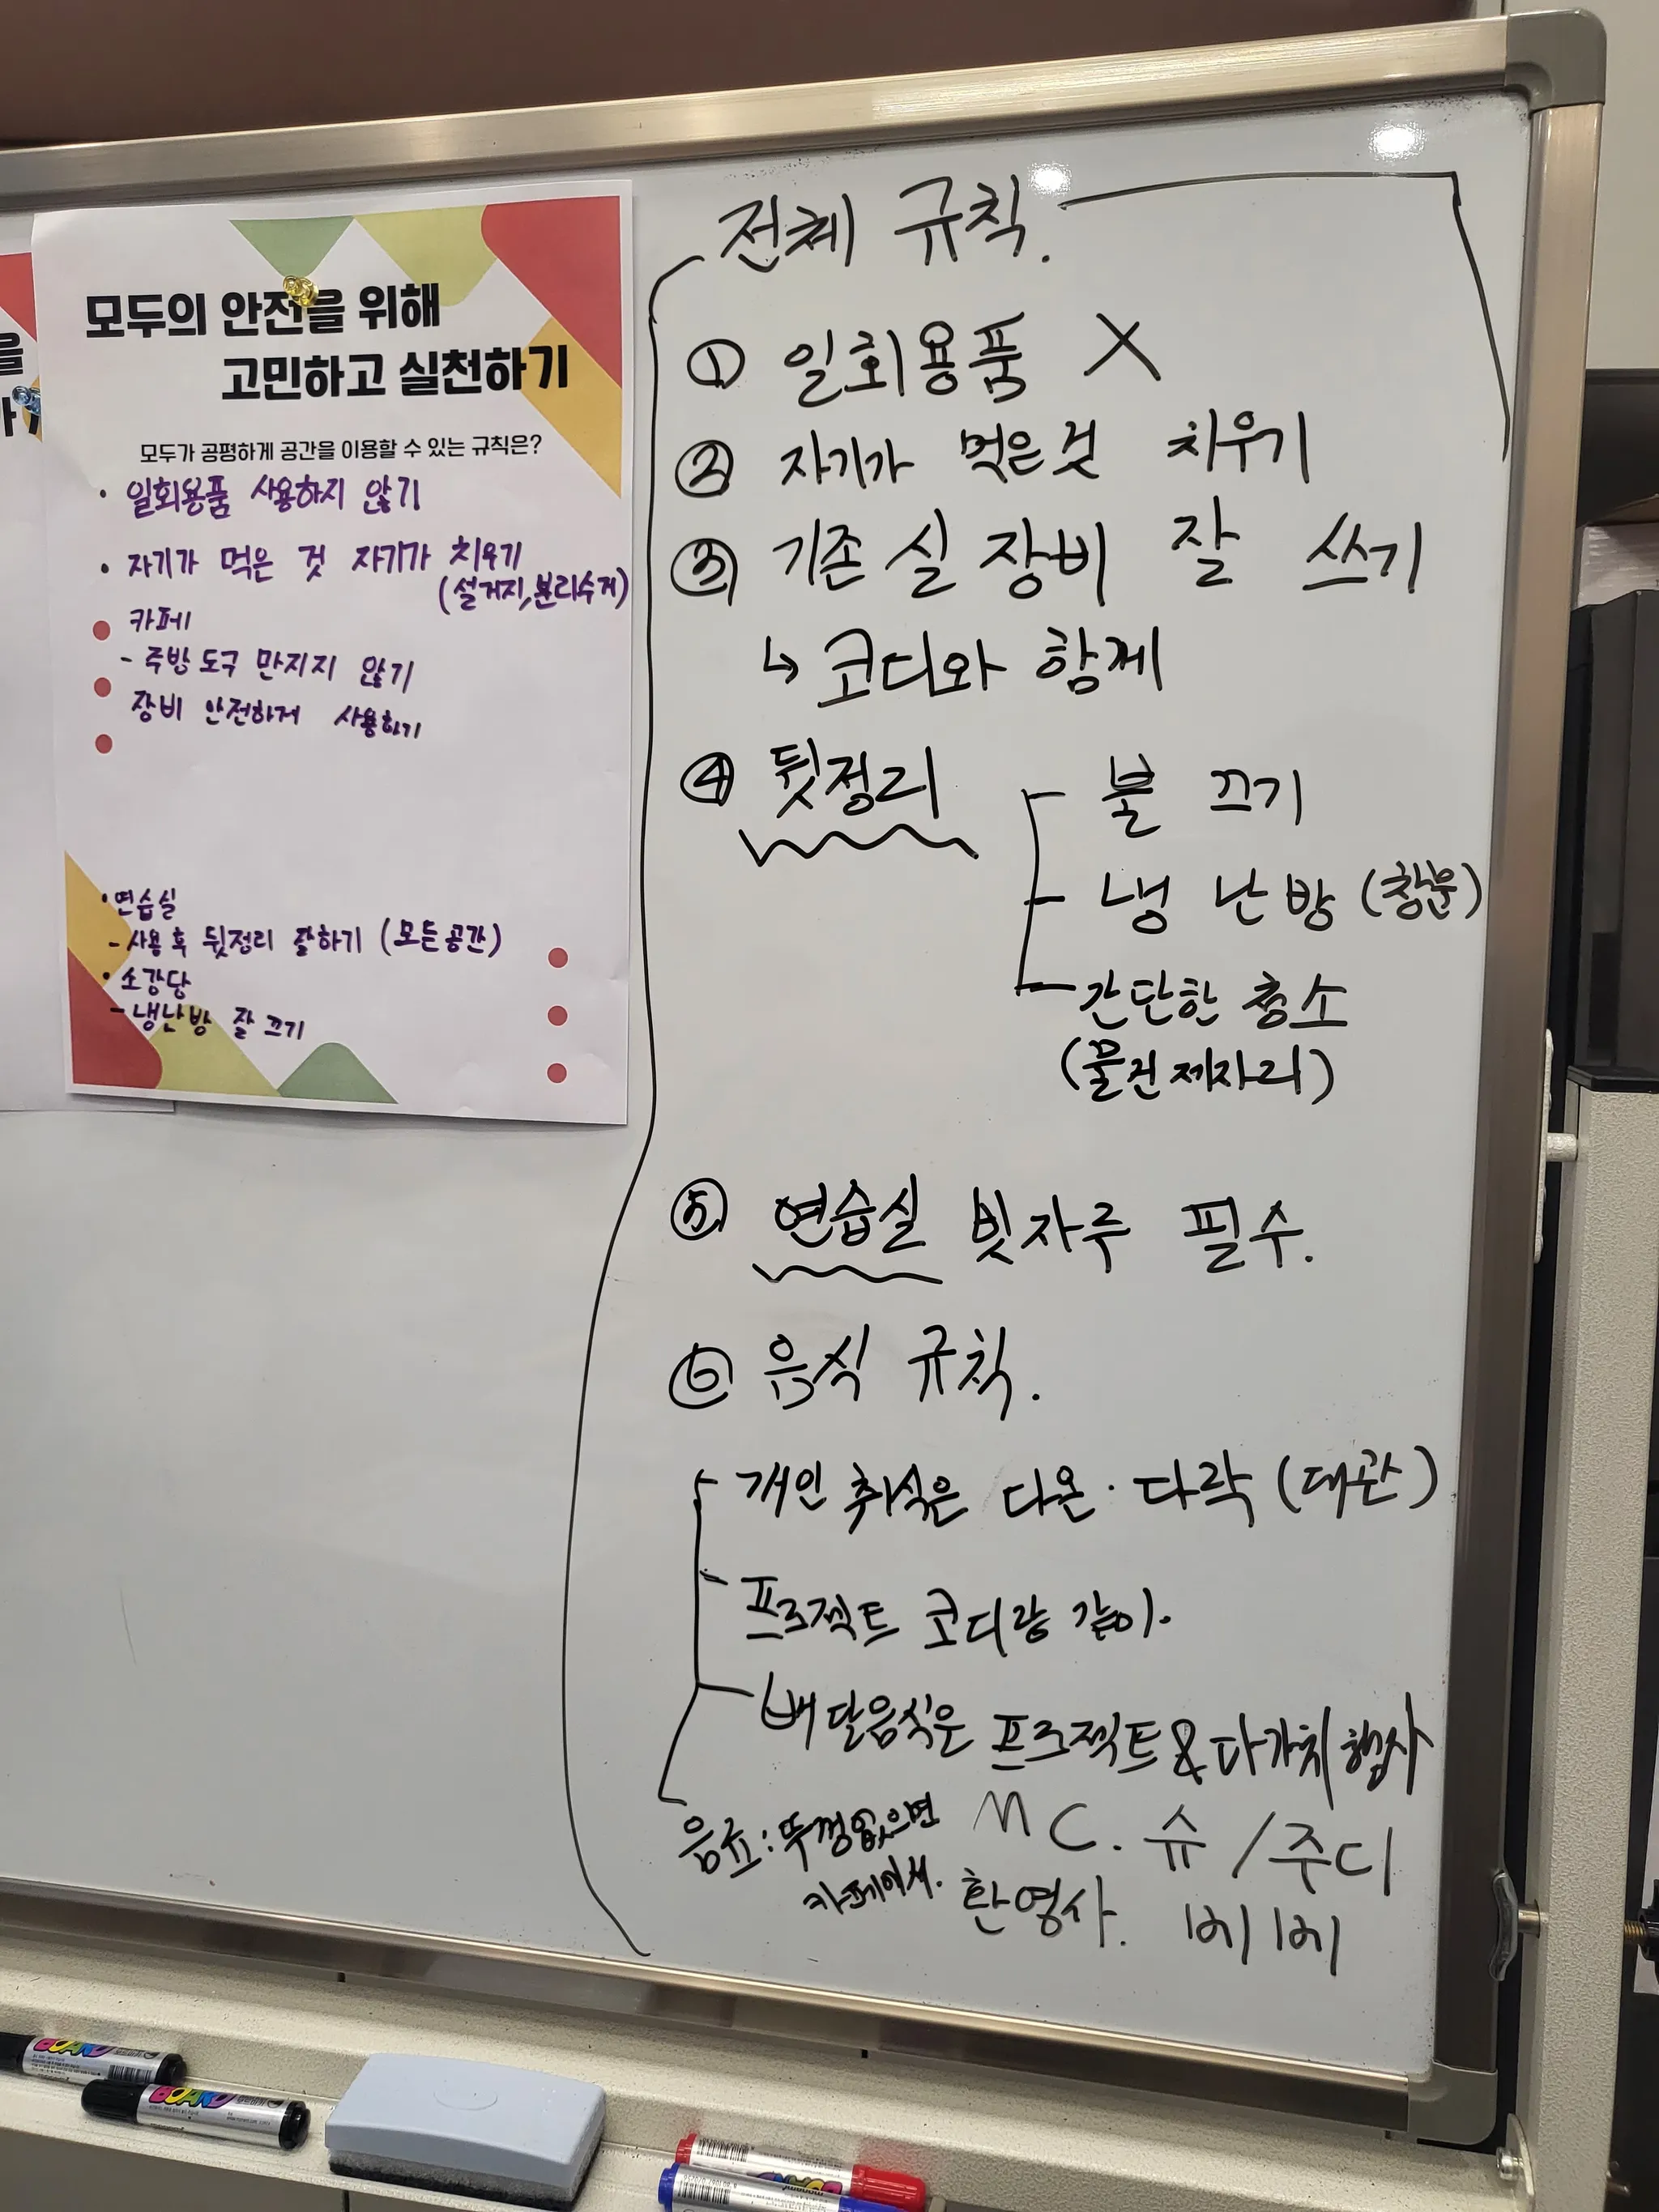 모두의 안전을 위해
고민하고 실천하기
모두가 공평하게 공간을 이용할 수 있는 규칙은?
· 일회용품 사용하지 않기
· 자기가 먹은 것 자기가 치우기
(설거지, 분리수거)
카페
- 주방도구 만지지 않기
장비 안전하게 사용하기
· 연습실
- 사용 후 뒷정리 잘하기 (모든 공간)
· 소강당
- 냉난방 잘 끄기
전체 규칙.
① 일회용품 X
② 자기가 먹은것 치우기
③ 기존 실 장비 잘 쓰기
↳ 코디와 함께
④ 뒷정리
불 끄기
냉 난방 (창문)
간단한 청소
(물건 제자리)
⑤ 연습실 빗자루 필수.
⑥ 음식 규칙.
개인 취식은 다온 · 다락 (대관)
프로젝트 코디랑 같이.
배달음식은 프로젝트 & 다가치 행사
음료: 뚜껑없으면
카페에서.
MC. 슈 / 주디
환영사. 베베
BOARD
BOARD